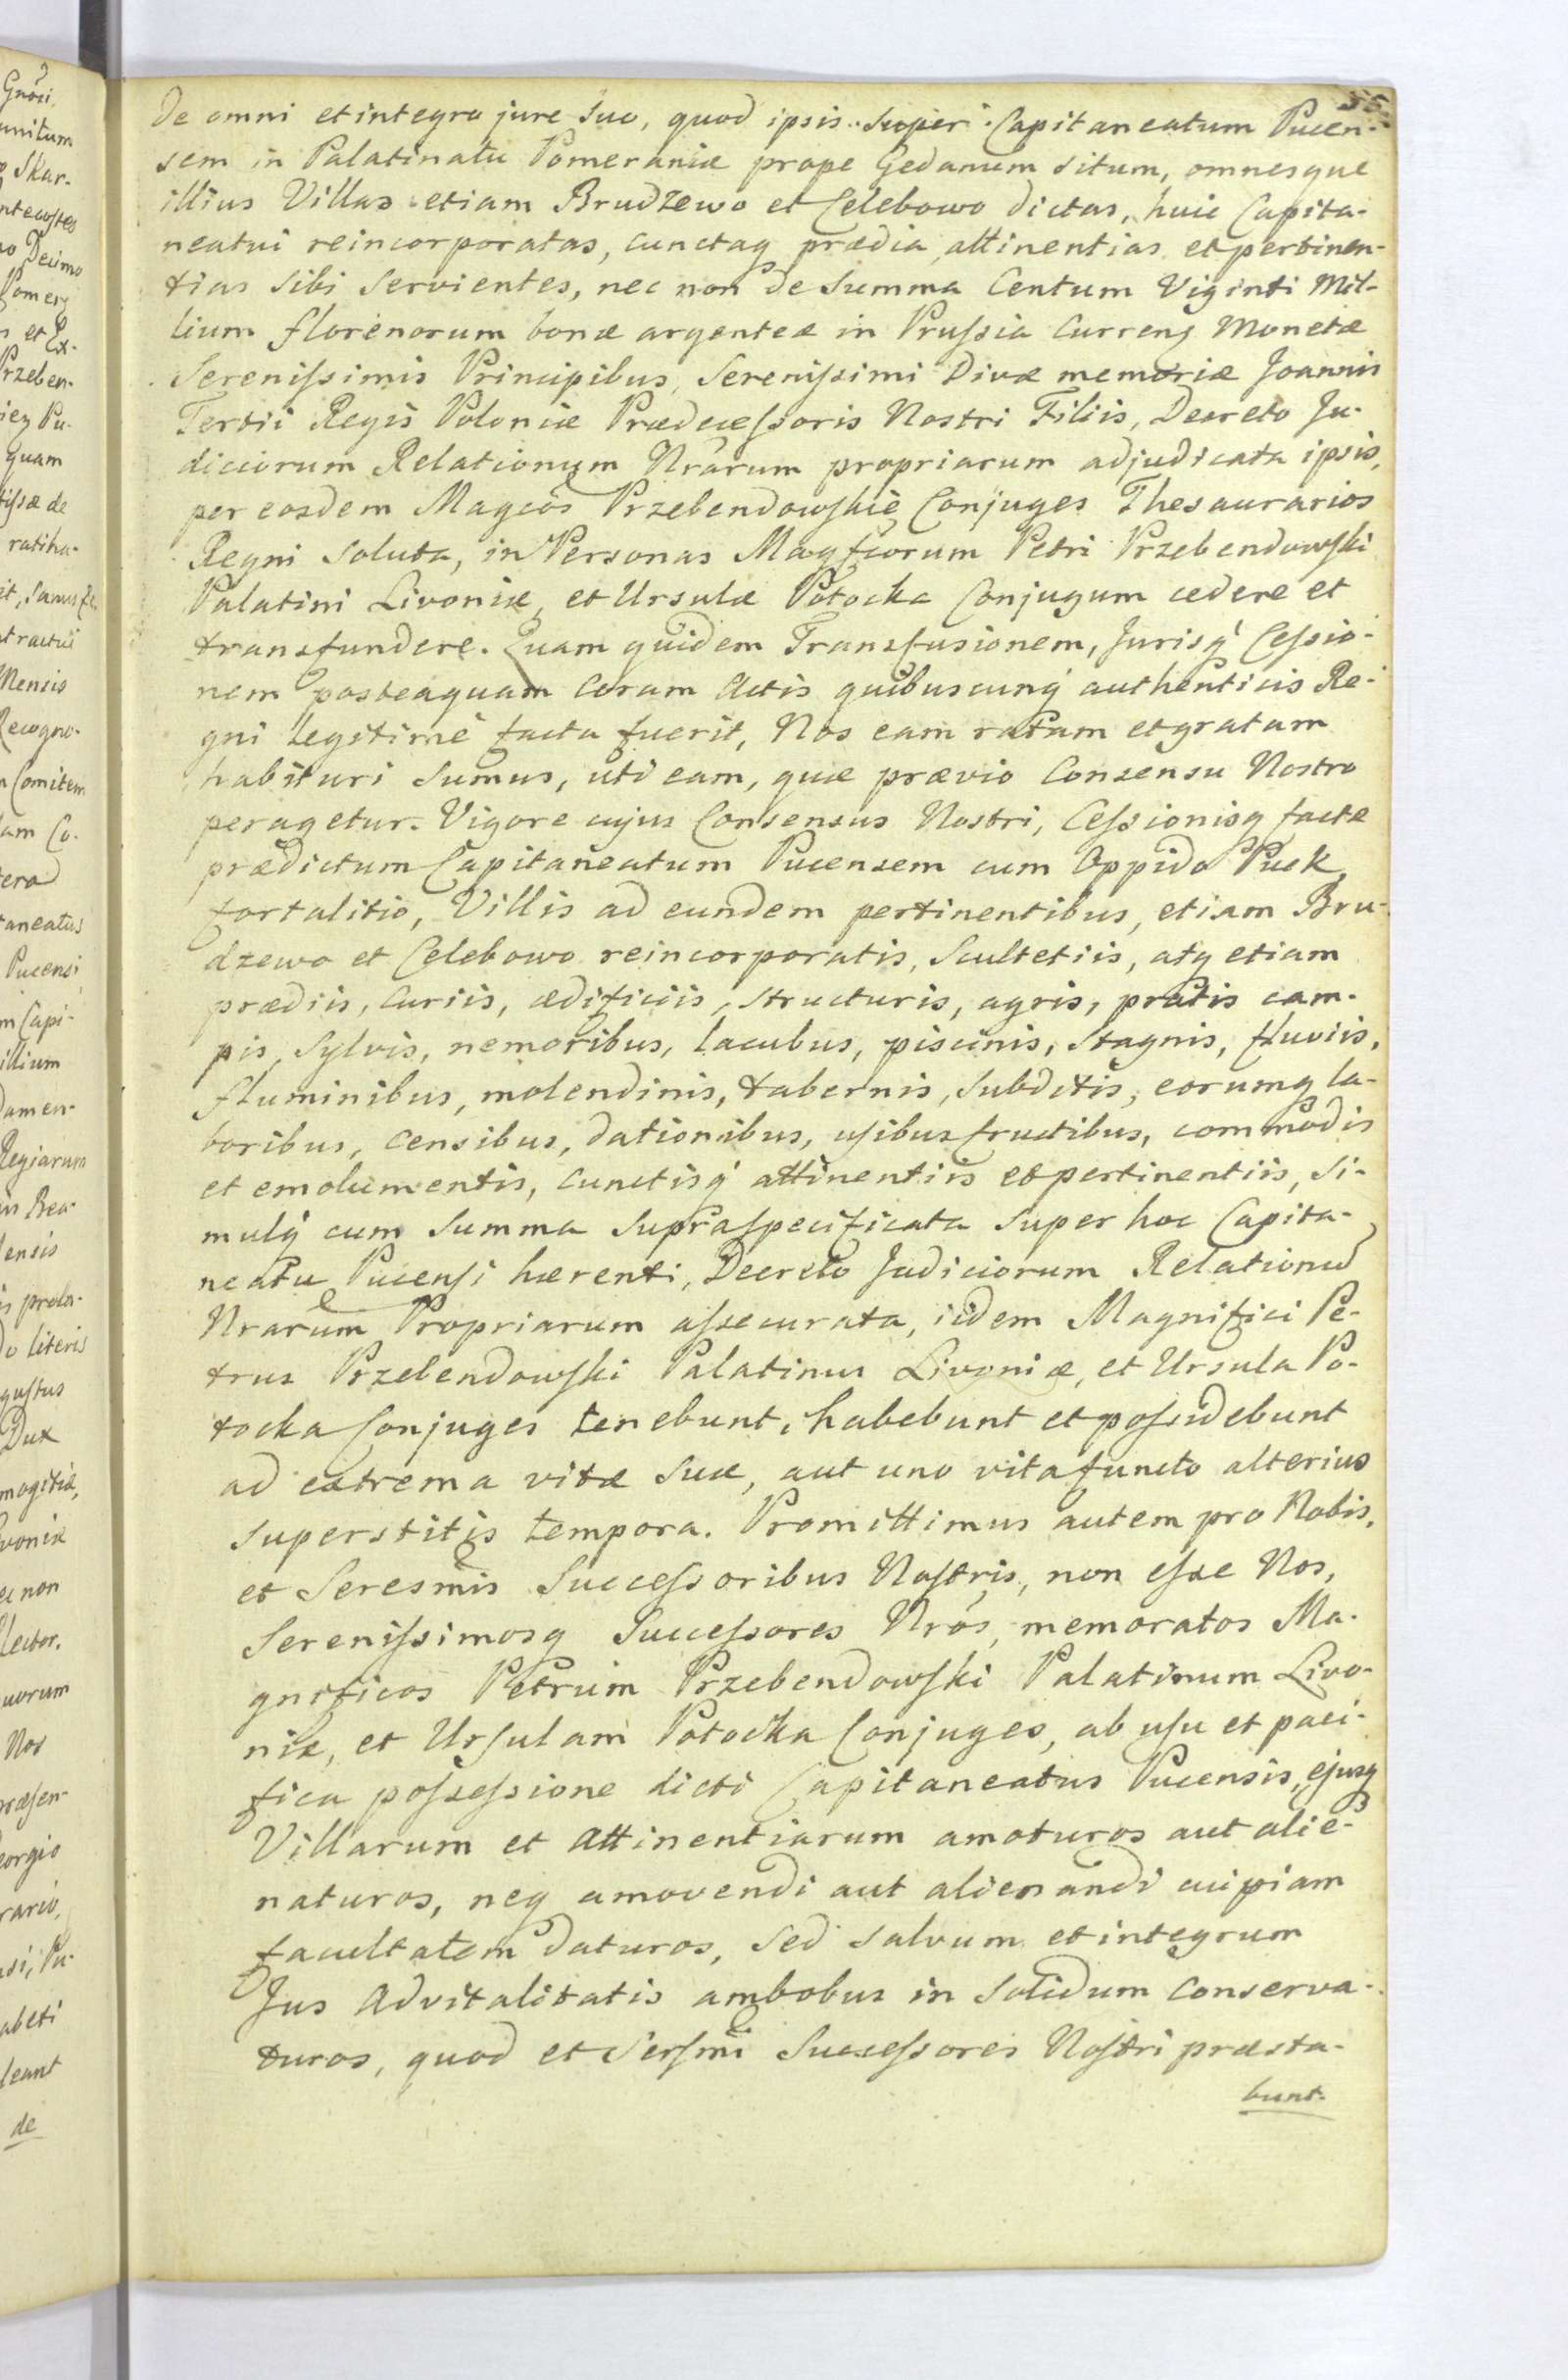 De omni et integro jure suo, quod ipsis super Capitaneatum Pucen-
sem in Palatinatu Pomeraniæ prope Gedanum situm, omnesque
illius Villas etiam Brudzewo et Celebowo dictas, huic Capita-
neatui reincorporatas, cunctaq prædia, attinentias et pertinen-
tias sibi servientes, nec non de summa Centum Viginti Mil-
lium florenorum bonæ argenteæ in Prussia Curreng Monetæ
Serenissimis Principibus, Serenissimi Divæ memoriæ Joannis
Tertii Regis Poloniæ Prædecessoris Nostri Filiis, Decreto Ju-
diciorum Relationum Nrarum propriarum adjudicata ipsis,
per eosdem Magcos Przebendowskie Conjuges Thesaurarios
Regni soluta, in Personas Magfcorum Petri Przebendowski
Palatini Livoniæ, et Ursulæ Potocka Conjugum cedere et
transfundere. Quam quidem Transfusionem, Jurisq Cessio-
nem posteaquam coram Actis quibuscunq authenticis Re-
gni legitimè facta fuerit, Nos eam ratam et gratam
habituri sumus, uti eam, quæ prævio Consensu Nostro
peragetur. Vigore cujus Consensus Nostri, Cessionisq factæ
prædictum Capitaneatum Pucensem cum Oppido Puck,
fortalitio, Villis ad eundem pertinentibus, etiam Bru-
dzewo et Celebowo reincorporatis, Scultetiis, atq etiam
prædiis, curiis, ædificiis, structuris, agris, pratis cam-
pis, sylvis, nemoribus, lacubus, piscinis, stagnis, fluviis,
fluminibus, molendinis, tabernis, subditis, eorumq la-
boribus, censibus, dationibus, usibusfructibus, commodis
et emolumentis, cunctisq attinentiis et pertinentiis, si-
mulq cum summa supraspecificata super hoc Capita-
neatu Pucensi hærenti, Decreto Judiciorum Relationū
Nrarum Propriarum assecurata, iidem Magnifici Pe-
trus Przebendowski Palatinus Livoniæ, et Ursula Po-
tocka Conjuges tenebunt, habebunt et possidebunt
ad extrema vitæ suæ, aut uno vita functo alterius
superstitis tempora. Promittimus autem pro Nobis,
et Seresmis Successoribus Nostris, non esse Nos,
Serenissimosq Successores Nros, memoratos Ma-
gnificos Petrum Przebendowski Palatinum Livo-
niæ, et Ursulam Potocka Conjuges, ab usu et paci-
fica possessione dicti Capitaneatus Pucensis, ejusq
Villarum et Attinentiarum amoturos aut alie-
naturos, neq amovendi aut alienandi cuipiam
facultatem daturos, sed salvum et integrum
Jus Advitalitatis ambobus in solidum conserva-
turos, quod et Sersmi Successores Nostri præsta-
bunt.